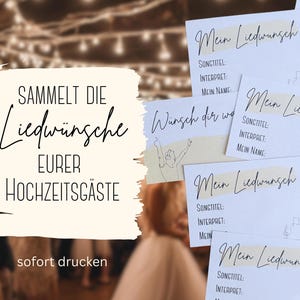 SAMMELT DIE
Liedwünsche
EURER
HOCHZEITSGÄSTE
sofort drucken
Mein Liedwunsch
SONGTITEL:
INTERPRET:
MEIN NAME:
Wünsch dir wa
Mein Lie
SONGTITEL:
INTERPRET:
MEIN NAME:
Mein Liedwunsch
SONGTITEL:
INTERPRET:
MEIN
Mein Liedwunsch
SONGTITEL:
INTERPRET: